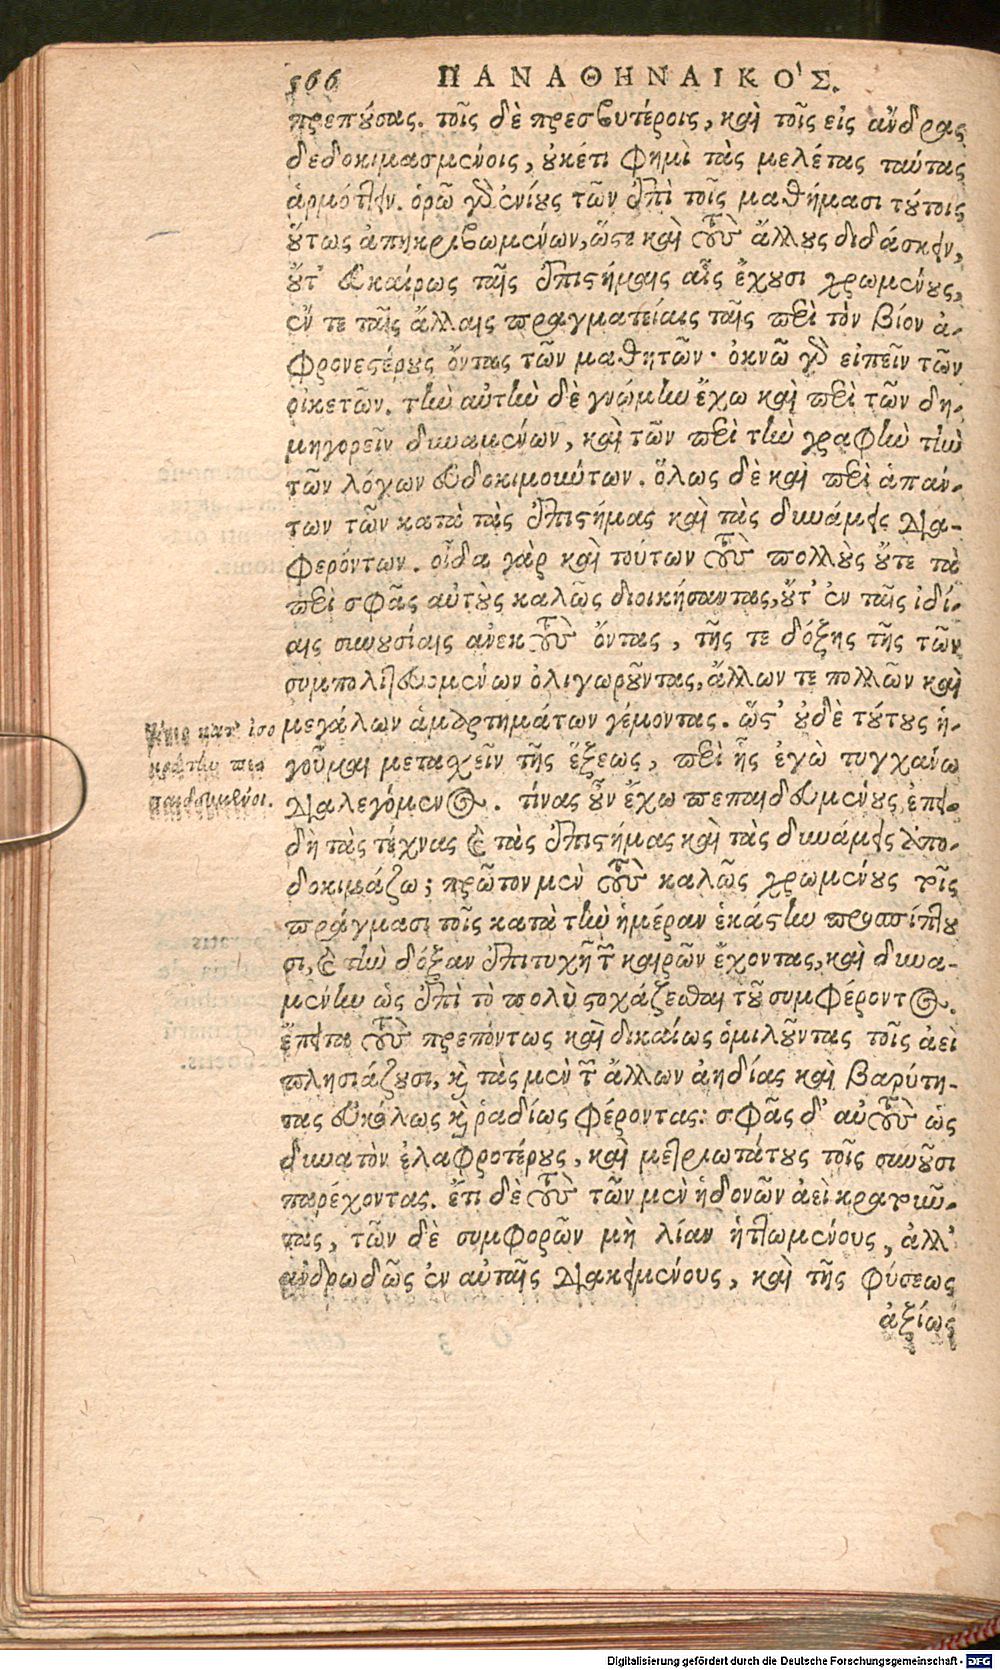 566 ΠΑΝΑΘΗΝΑΙΚΟ'Σ.
πρεπούσας. τοῖς δὲ πρεσβυτέροις, καὶ τοῖς εἰς ἄνδρας
δεδοκιμασμένοις, οὐκέτι φημὶ τὰς μελέτας ταύτας
ἁρμόττειν. ὁρῶ γὸ ἐνίους τῶν ἐπὶ τοῖς μαθήμασι τούτοις
οὕτως ἀπηκριβωμένων, ὥστε καὶ τοὺς ἄλλους διδάσκειν,
οὔτ' εὐκαίρως ταῖς ἐπιστήμαις αἷς ἔχουσι χρωμένους,
ἔν τε ταῖς ἄλλαις πραγματείαις ταῖς περὶ τὸν βίον ἀ-
φρονεστέρους ὄντας τῶν μαθητῶν· ὀκνῶ γὸ εἰπεῖν τῶν
οἰκετῶν. τὴν αὐτὴν δὲ γνώμην ἔχω καὶ περὶ τῶν δη-
μηγορεῖν δυναμένων, καὶ τῶν περὶ τὴν γραφὴν τὴν
τῶν λόγων εὐδοκιμούντων. ὅλως δὲ καὶ περὶ ἁπάν-
των τῶν κατὰ τὰς ἐπιστήμας καὶ τὰς δυνάμεις δια-
φερόντων. οἶδα γὰρ καὶ τούτων τοὺς πολλοὺς οὔτε τὰ
περὶ σφᾶς αὐτοὺς καλῶς διοικήσαντας, οὔτ' ἐν ταῖς ἰδί-
αις συνουσίαις ἀνεκτοὺς ὄντας, τῆς τε δόξης τῆς τῶν
συμπολιτευομένων ὀλιγωροῦντας, ἄλλων τε πολλῶν καὶ
μεγάλων ἁμαρτημάτων γέμοντας. ὥστ' οὐδὲ τούτους ἡ-
γοῦμαι μετασχεῖν τῆς ἕξεως, περὶ ἧς ἐγὼ τυγχάνω
διαλεγόμενος. τίνας οὖν ἔχω πεπαιδευμένους, ἐπει-
δὴ τὰς τέχνας καὶ τὰς ἐπιστήμας καὶ τὰς δυνάμεις ἀπο-
δοκιμάζω; πρῶτον μὲν τοὺς καλῶς χρωμένους τοῖς
πράγμασι τοῖς κατὰ τὴν ἡμέραν ἑκάστην προσπίπτου
σι, καὶ τὴν δόξαν ἐπιτυχῆ τῶν καιρῶν ἔχοντας, καὶ δυνα-
μένην ὡς ἐπὶ τὸ πολὺ στοχάζεσθαι τοῦ συμφέροντος.
ἔπειτα τοὺς πρεπόντως καὶ δικαίως ὁμιλοῦντας τοῖς ἀεὶ
πλησιάζουσι, καὶ τὰς μὲν τῶν ἄλλων ἀηδίας καὶ βαρύτη-
τας εὐκόλως καὶ ῥᾳδίως φέροντας: σφᾶς δ' αὐτοὺς ὡς
δυνατὸν ἐλαφροτέρους, καὶ μετριωτάτους τοῖς συνοῦσι
παρέχοντας. ἔτι δὲ τοὺς τῶν μὲν ἡδονῶν ἀεὶ κρατοῦν-
τας, τῶν δὲ συμφορῶν μὴ λίαν ἡττωμένους, ἀλλ'
ἀνδρωδῶς ἐν αὐταῖς διακειμένους, καὶ τῆς φύσεως
ἀξίως
κατ' ἰσο
κράτην πεπαιδευμένοι.
Digitalisierung gefördert durch die Deutsche Forschungsgemeinschaft - DFG